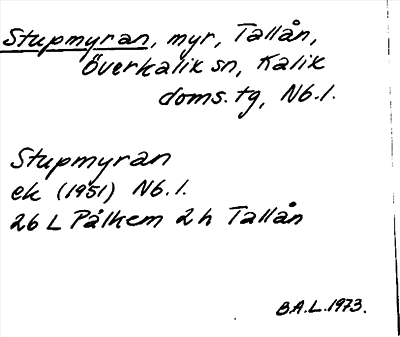 Stupmyran, myr, Tallån,
Överkalix sn, Kalix
doms.tg, Nb.l.
Stupmyran
ek (1951) Nb.l.
26 L Pålkem 2h Tallån
B.A.L. 1973.